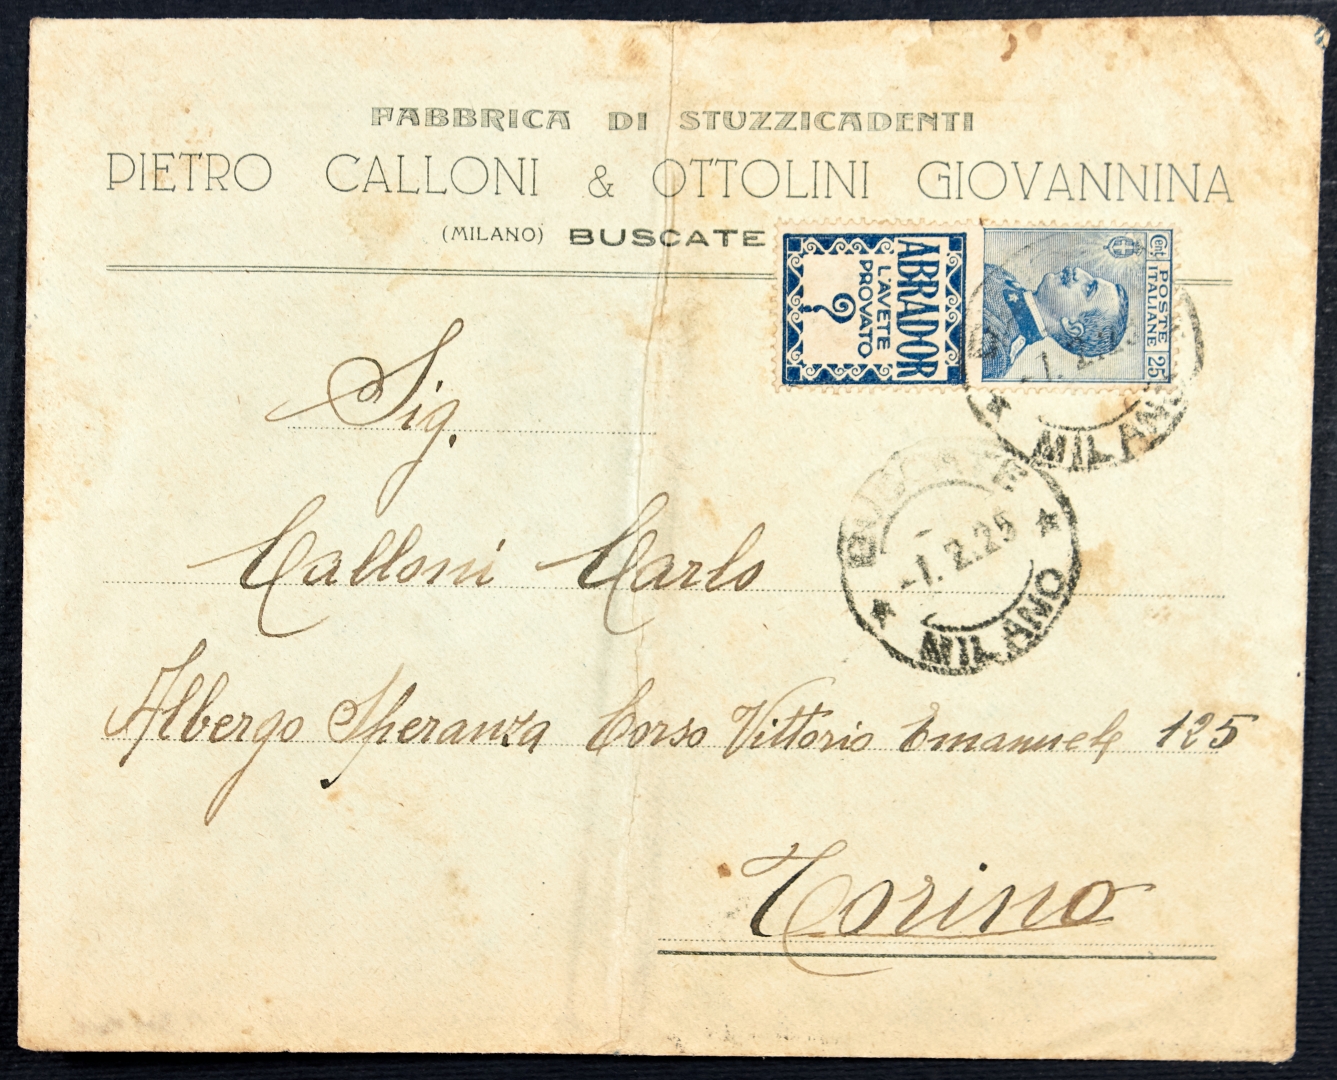 FABBRICA DI STUZZICADENTI
PIETRO CALLONI & OTTOLINI GIOVANNINA
(MILANO) BUSCATE
ABRADOR
L'AVETE
PROVATO
?
Cent. 25
POSTE
ITALIANE
MILANO
BUSCATE
-1.2.25
MILANO
Sig.
Calloni Carlo
Albergo Speranza Corso Vittorio Emanuele 125
Torino